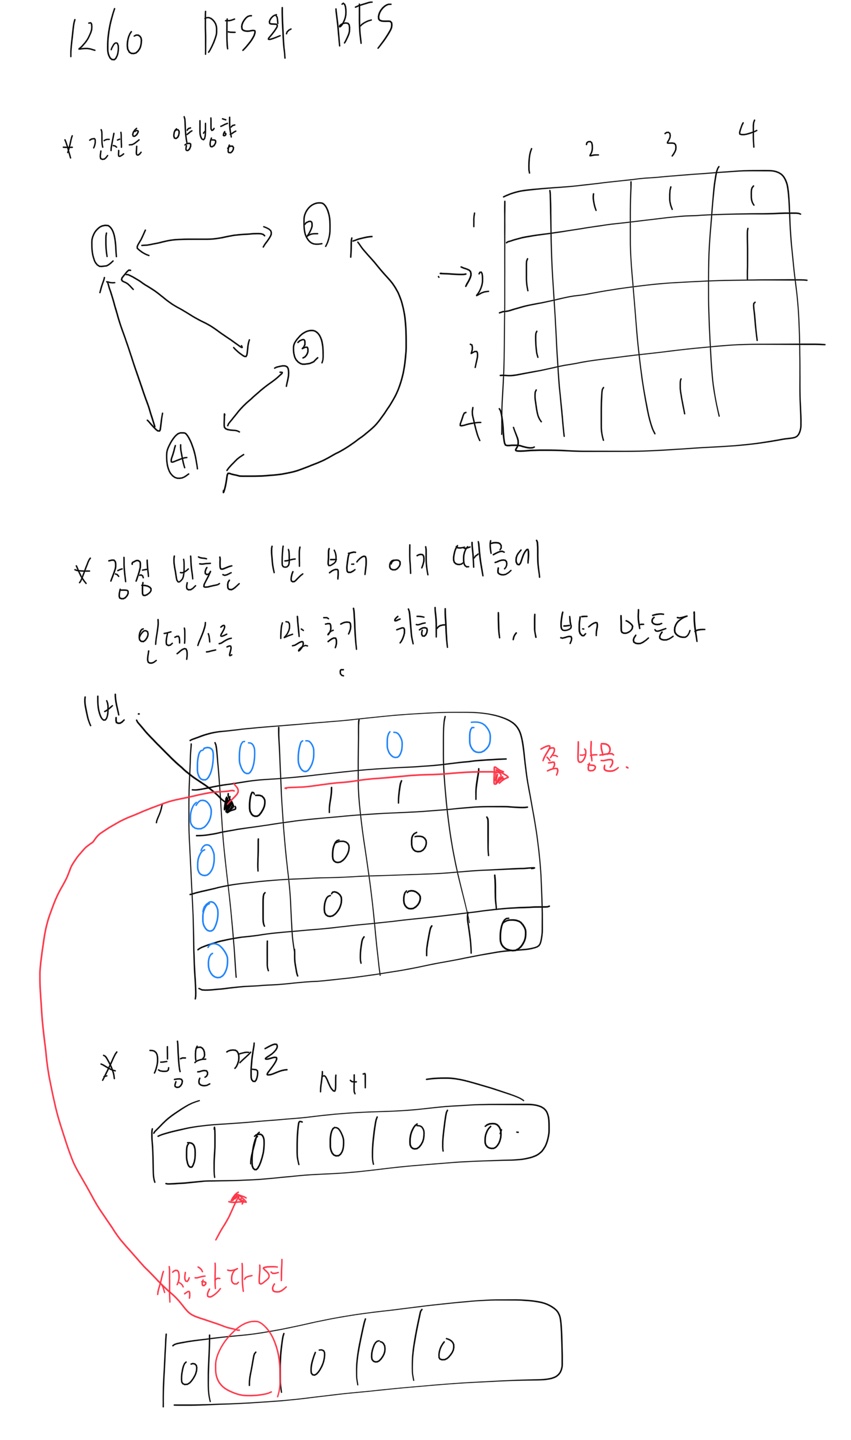 1260 DFS와 BFS
* 간선은 양방향
1 2 3 4
1 1 1 1
→2 1 1
3 1 1
4 1 1 1
① ②
③
④
* 정정 번호는 1번 부터 이기 때문에
인덱스를 맞추기 위해 1,1 부터 만든다
1번
0 0 0 0 0
0 0 1 1 1
쭉 방문.
0 1 0 0 1
0 1 0 0 1
0 1 1 1 0
* 방문 경로
N+1
0 0 0 0 0
시작한다면
0 1 0 0 0